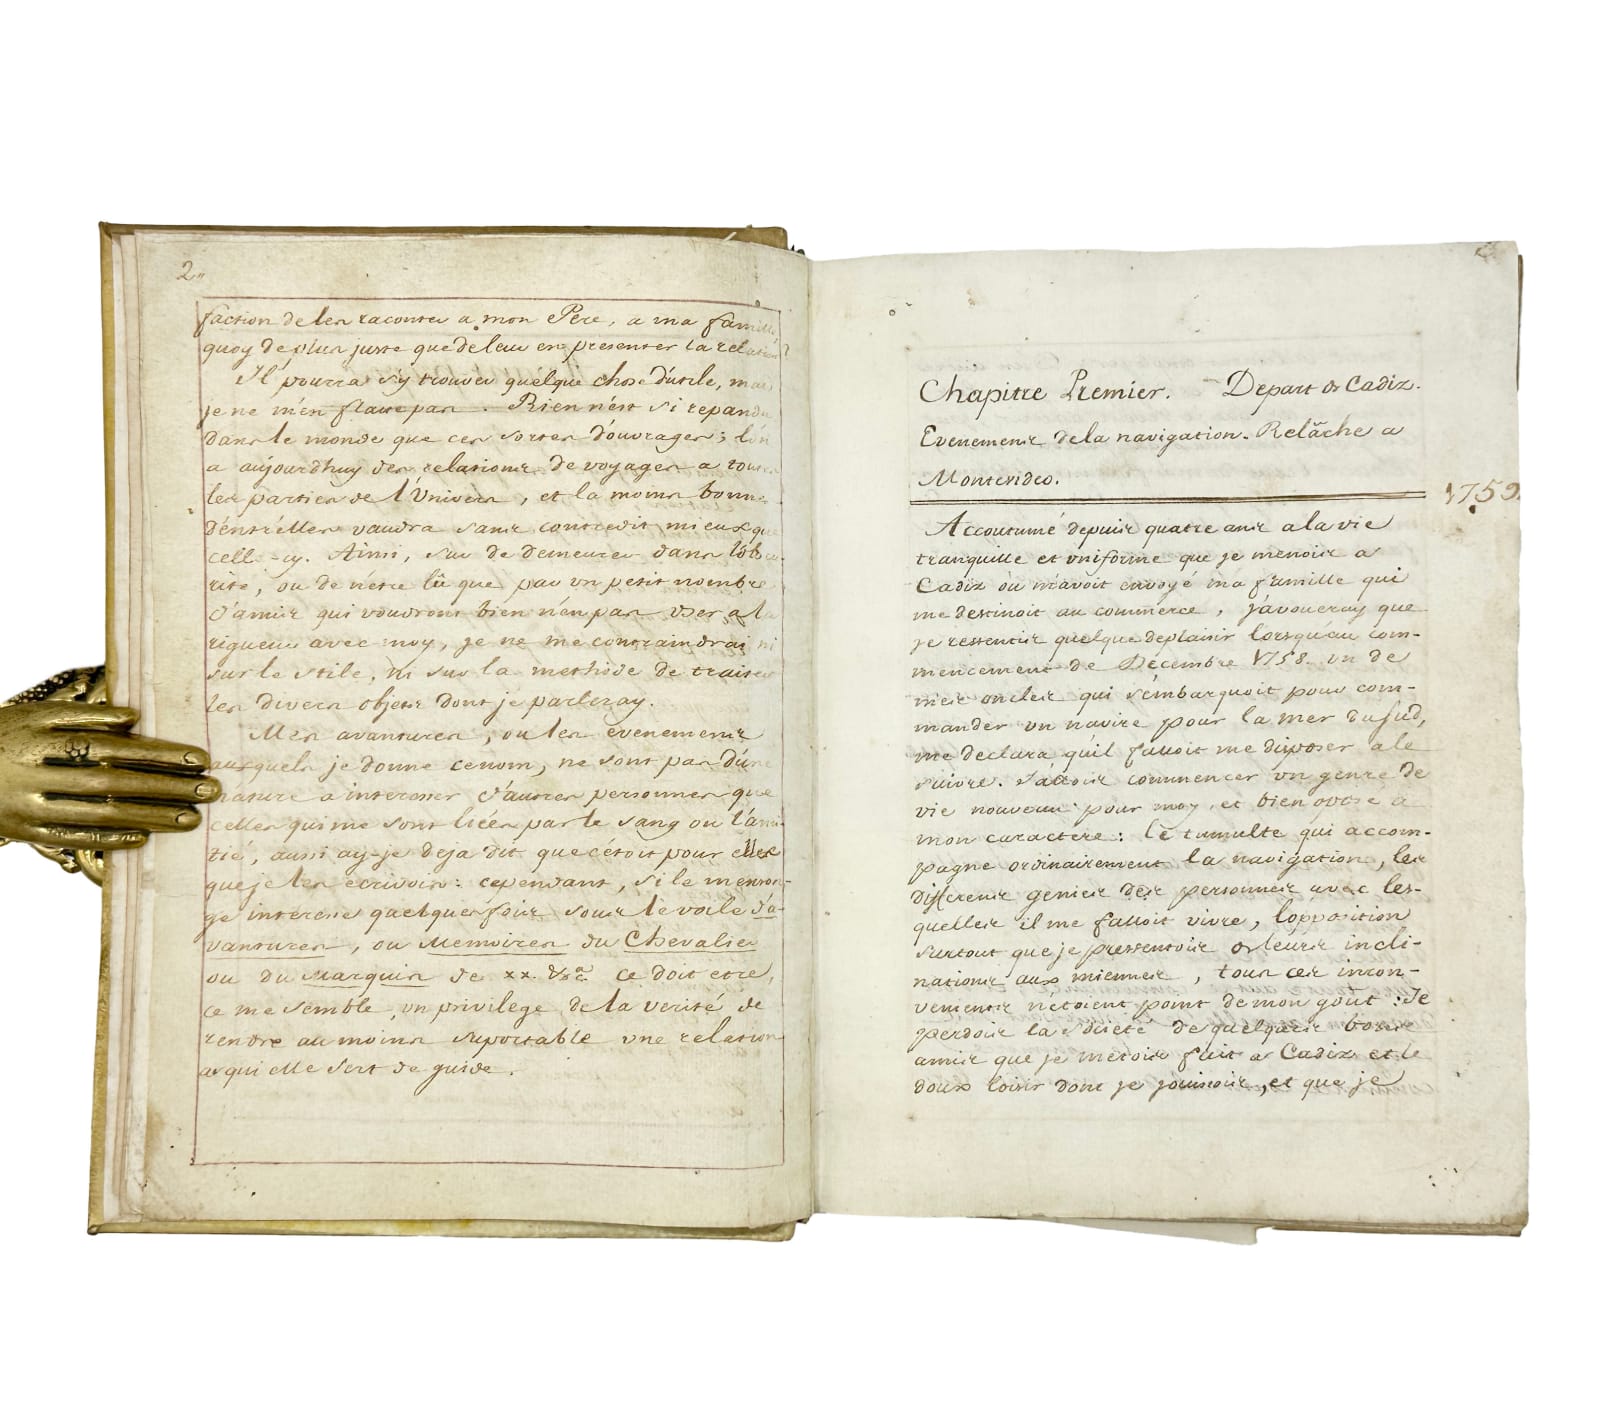 2.,
faction de les raconter a mon Pere, a ma famille
quoy de plus juste que de leur en presenter la relation?
Il pourra s'y trouver quelque chose d'utile, mais
je ne m'en flatte pas. Rien n'est si repandu
dans le monde que ces sortes d'ouvrages; l'on
a aujourdhuy des relations de voyages a toutes
les parties de l'Univers, et la moins bonne
d'entr'elles vaudra sans contredit mieux que
celle-cy. Ainsi, sur de demeurer dans l'obscu-
rité, ou de n'etre lû que par un petit nombre
d'amis qui voudront bien n'en pas user a la
rigueur avec moy, je ne me contraindrai ni
sur le stile, ni sur la methode de traiter
les divers objets dont je parleray.
Mes avantures, ou les evenements
auxquels je donne ce nom, ne sont pas d'une
nature a interesser d'autres personnes que
celles qui me sont liées par le sang ou l'ami-
tié, aussi ay-je deja dit que c'étoit pour elles
que je les ecrivois: cependant, si le menson-
ge interesse quelques fois sous le voile d'a-
vantures, ou Memoires du Chevalier
ou du Marquis de xx. &ca ce doit etre,
ce me semble, un privilege de la verité de
rendre au moins suportable une relation
a qui elle sert de guide.
Chapitre Premier. Depart de Cadiz.
Evenements de la navigation. Relâche a
Montevideo.
1759.
Accoutumé depuis quatre ans a la vie
tranquille et uniforme que je menois a
Cadiz ou m'avoit envoyé ma famille qui
me destinoit au commerce, j'avoueray que
je ressentis quelque deplaisir lorsqu'au com-
mencement de Décembre 1758. un de
mes oncles qui s'embarquoit pour com-
mander un navire pour la mer du sud,
me declara qu'il falloit me disposer a le
suivre. J'allois commencer un genre de
vie nouveau pour moy, et bien oposé a
mon caractere: le tumulte qui accom-
pagne ordinairement la navigation, les
differens genies des personnes avec les-
quelles il me falloit vivre, l'opposition
surtout que je pressentois de leurs incli-
nations aux miennes, tous ces incon-
venients n'étoient point de mon goût: Je
perdois la société de quelques bons
amis que je m'etois fait a Cadiz et le
doux loisir dont je jouissois, et que je